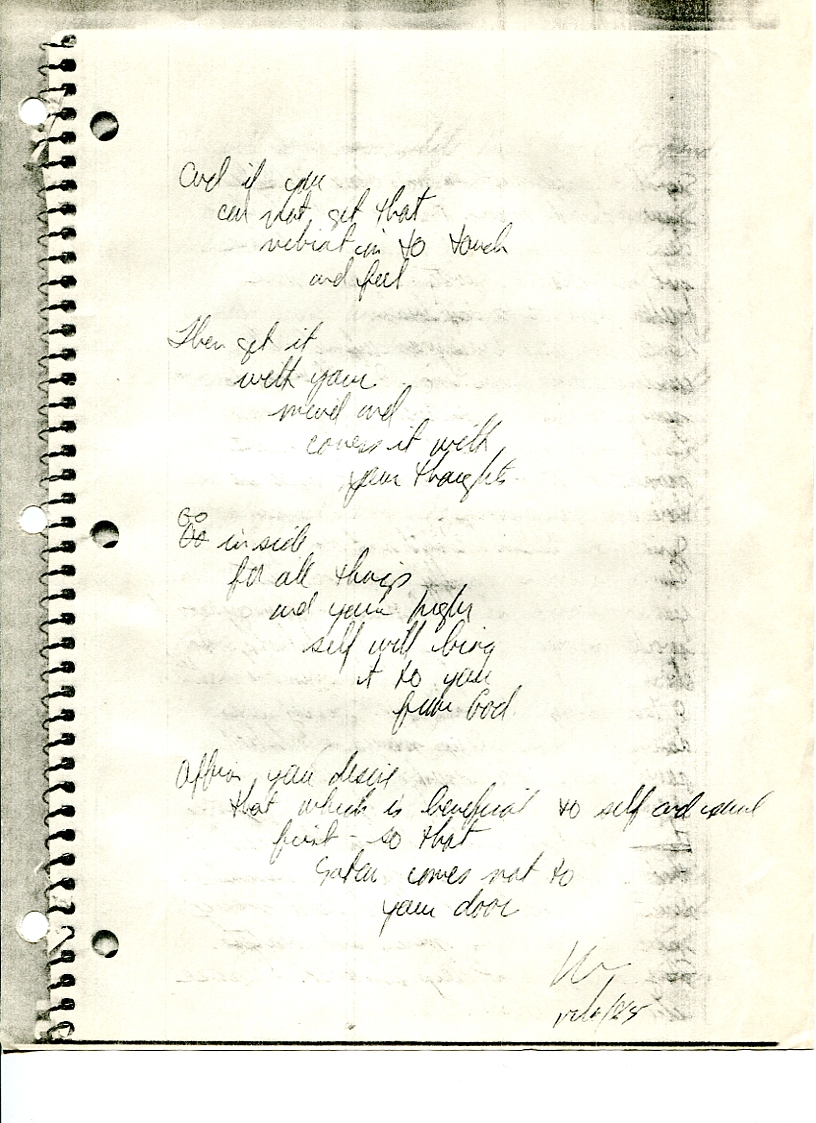 And if you
can not get that
vebration to touch
and feel
Then get it
with your
mind and
caress it with
your thoughts
Go
Go inside
for all things
and your higher
self will bring
it to you
from God
Affirm your desire
that which is beneficial to self and
first - so that
Satan comes not to
your door